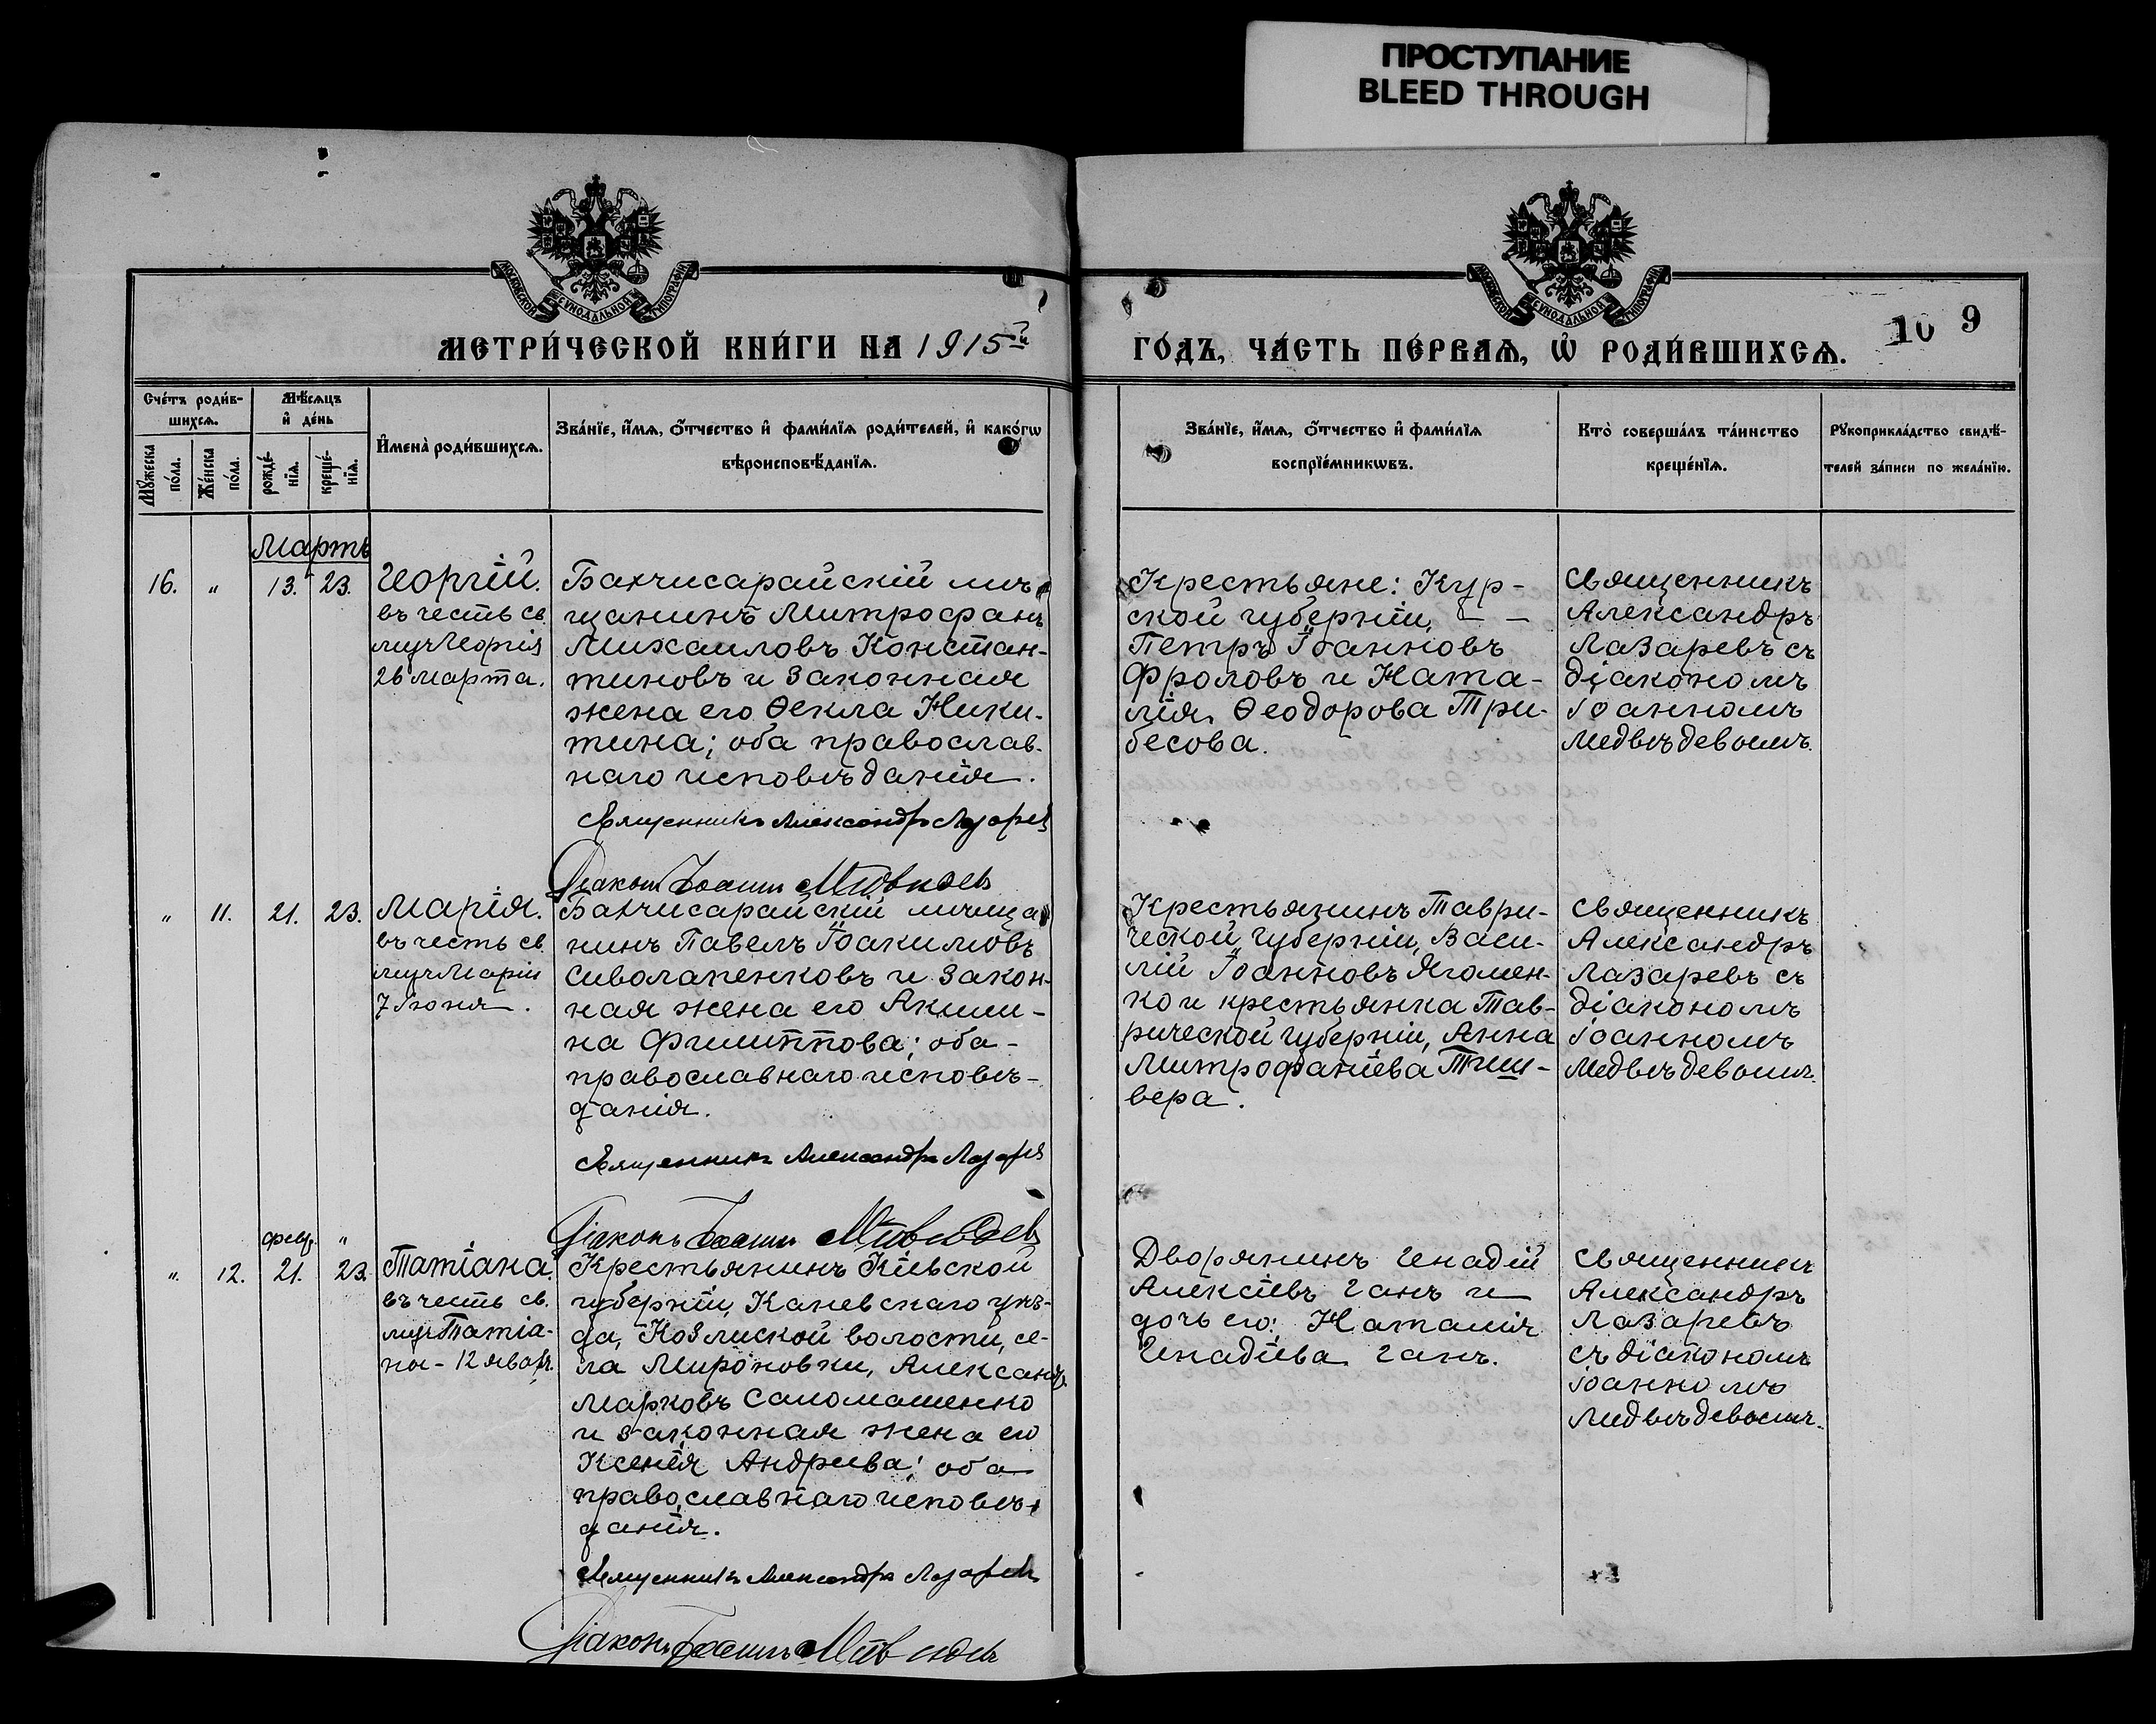 ПРОСТУПАНИЕ
BLEED THROUGH
МОСКОВСКОЙ СѴНОДАЛЬНОЙ ТИПОГРАФІИ
МОСКОВСКОЙ СѴНОДАЛЬНОЙ ТИПОГРАФІИ
МЕТРИ́ЧЕСКОЙ КНИ́ГИ НА 1915й
ГО́ДЪ, ЧА́СТЬ ПЕ́РВАѦ, Ѡ҆ РОДИ́ВШИХСѦ.
10 9
Сче́тъ роди́в-
шихсѧ.
Мꙋ́жеска
по́ла.
Же́нска
по́ла.
Мѣ́сѧцъ
и҆ де́нь
рожде́-
нїѧ.
креще́-
нїѧ.
И҆мена̀ роди́вшихсѧ.
Зва́нїе, и҆́мѧ, ѻ҆́тчество и҆ фами́лїѧ роди́телей, и҆ како́гѡ
вѣроисповѣ́данїѧ.
Зва́нїе, и҆́мѧ, ѻ҆́тчество и҆ фами́лїѧ
воспрїе́мникѡвъ.
Кто̀ соверша́лъ та́инство
креще́нїѧ.
Рꙋкоприкла́дство свидѣ́-
телей за́писи по жела́нїю.
Мартъ
16. " 13. 23.
Георгій.
въ честь св.
муч Георгія
26 марта.
Бахчисарайскій мѣ-
щанинъ Митрофанъ
Михаиловъ Констан-
тиновъ и законная
жена его Ѳекла Ники-
тина; оба православ-
наго исповѣданія.
Священникъ Александръ Лазаревъ
Діаконъ Іоаннъ Медвѣдевъ
Крестьяне: Кур-
ской губерніи, - -
Петръ Іоанновъ
Фроловъ и Ната-
лія Ѳеодорова Три-
бесова.
Священникъ
Александръ
Лазаревъ съ
діакономъ
Іоанномъ
Медвѣдевымъ.
" 11. 21. 23.
Марія.
въ честь св.
муч Маріи
7 Іюня.
Бахчисарайскій мѣща-
нинъ Павелъ Іоакимовъ
Сиволапенковъ и закон-
ная жена его Акили-
на Филиппова; оба-
православнаго исповѣ-
данія.
Священникъ Александръ Лазаревъ
Діаконъ Іоаннъ Медвѣдевъ
Крестьянинъ Таври-
ческой губерніи, Васи-
лій Іоанновъ Ягомен-
ко и крестьянка Тав-
рической губерніи, Анна
Митрофаніева
вера.
Священникъ
Александръ
Лазаревъ съ
діакономъ
Іоанномъ
Медвѣдевымъ.
февр. "
" 12. 21. 23.
Татіана.
въ честь св.
муч Татіа-
ны - 12 январ.
Крестьянинъ Кіевской
губерніи, Каневскаго уѣз-
да, Козлиской волости, се-
ла Мироновки, Александръ
Марковъ Саломашенко
и законная жена его
Ксенія Андреева; оба
православнаго исповѣ-
данія.
Священникъ Александръ Лазаревъ
Діаконъ Іоаннъ Медвѣдевъ
Дворянинъ Генадій
Алексіевъ Ганъ и
дочь его: Наталія
Генадіева Ганъ.
Священникъ
Александръ
Лазаревъ
съ діакономъ
Іоанномъ
Медвѣдевымъ.